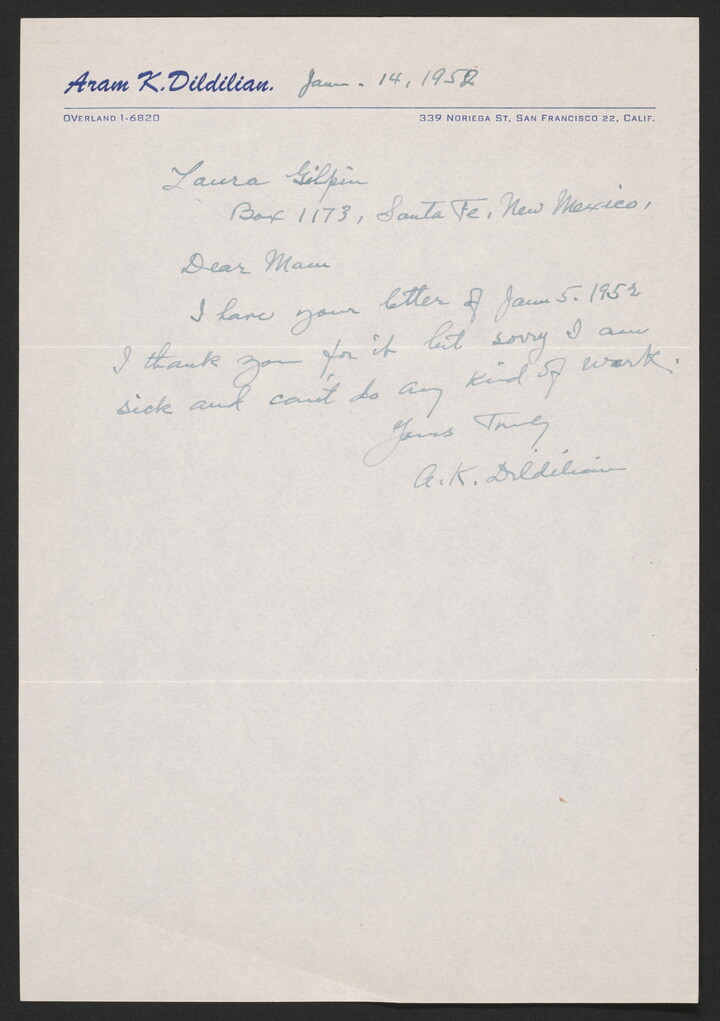 Aram K. Dildilian. Jan. 14, 1952
OVERLAND 1-6820 339 NORIEGA ST, SAN FRANCISCO 22, CALIF.
Laura Gilpin
Box 1173, Santa Fe, New Mexico,
Dear Mam
I have your letter of Jan 5. 1952
I thank you for it but sorry I am
sick and can't do any kind of work.
Yours Truly
A. K. Dildilian